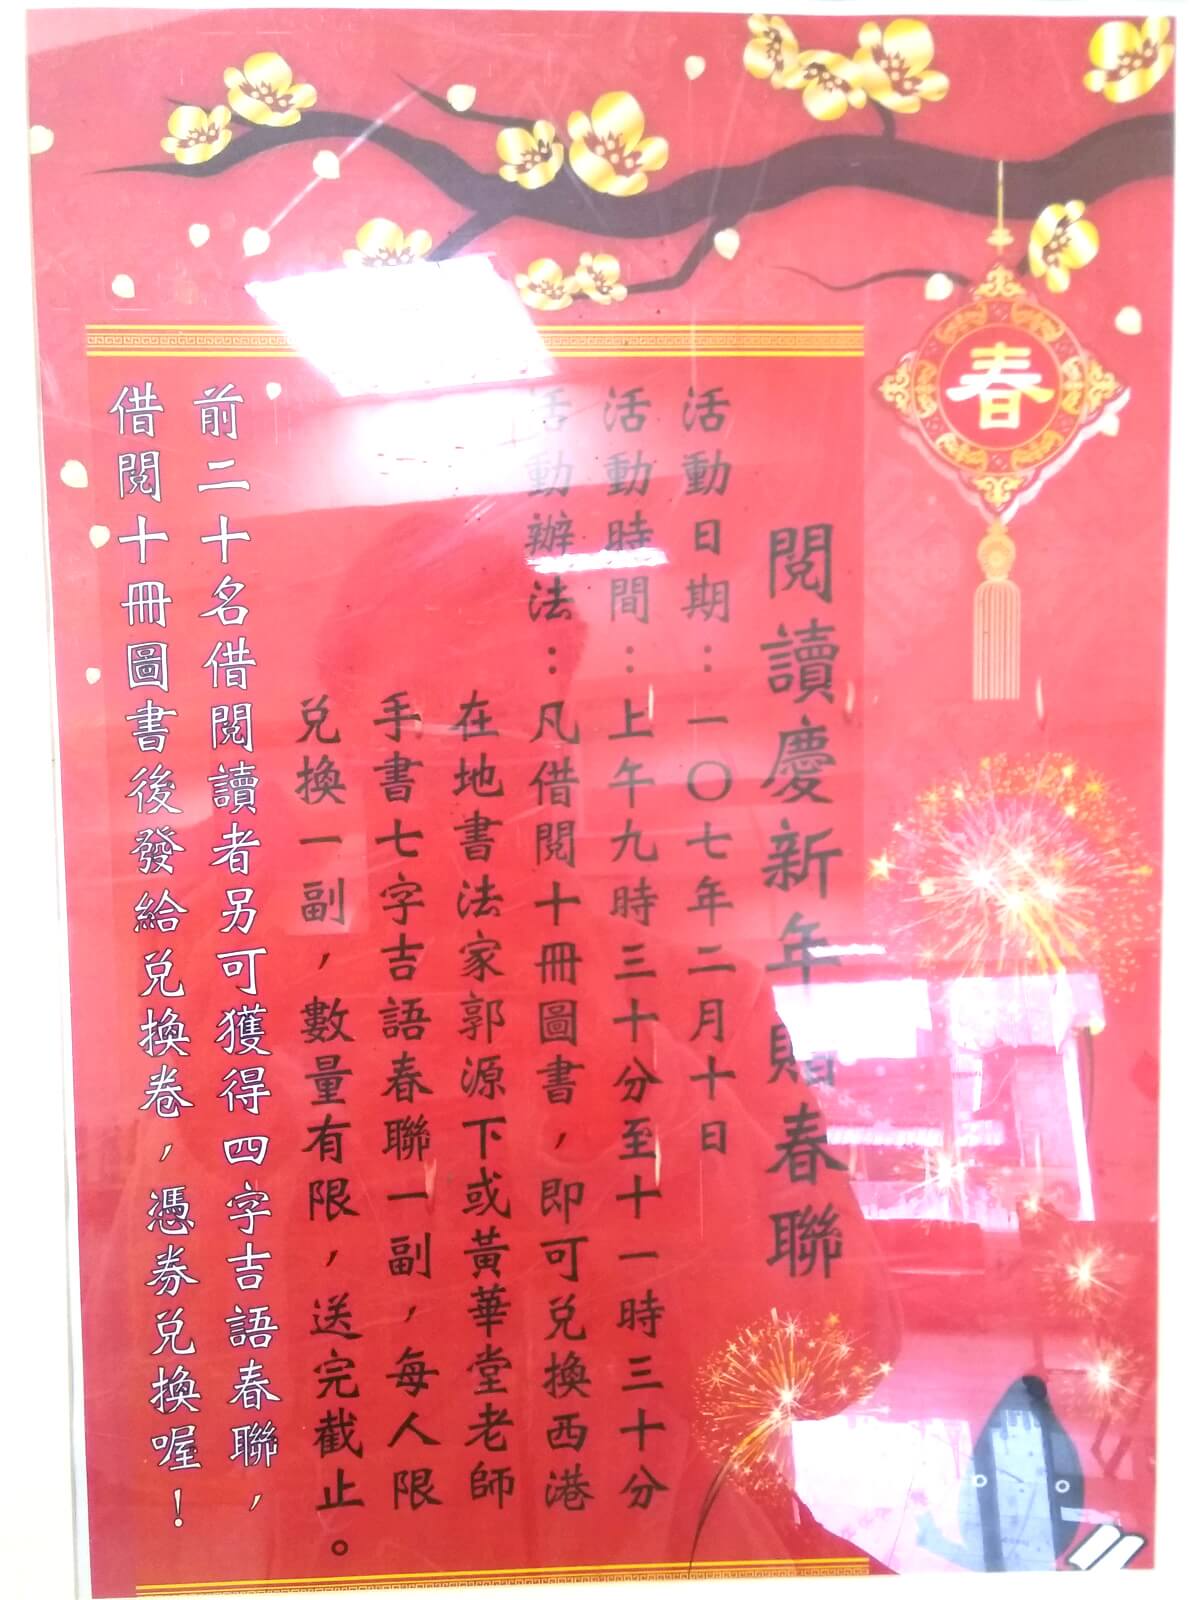 春
閱讀慶新年贈春聯
活動日期：一〇七年二月十日
活動時間：上午九時三十分至十一時三十分
活動辦法：凡借閱十冊圖書，即可兌換西港
在地書法家郭源下或黃華堂老師
手書七字吉語春聯一副，每人限
兌換一副，數量有限，送完截止。
前二十名借閱讀者另可獲得四字吉語春聯，
借閱十冊圖書後發給兌換卷，憑券兌換喔！